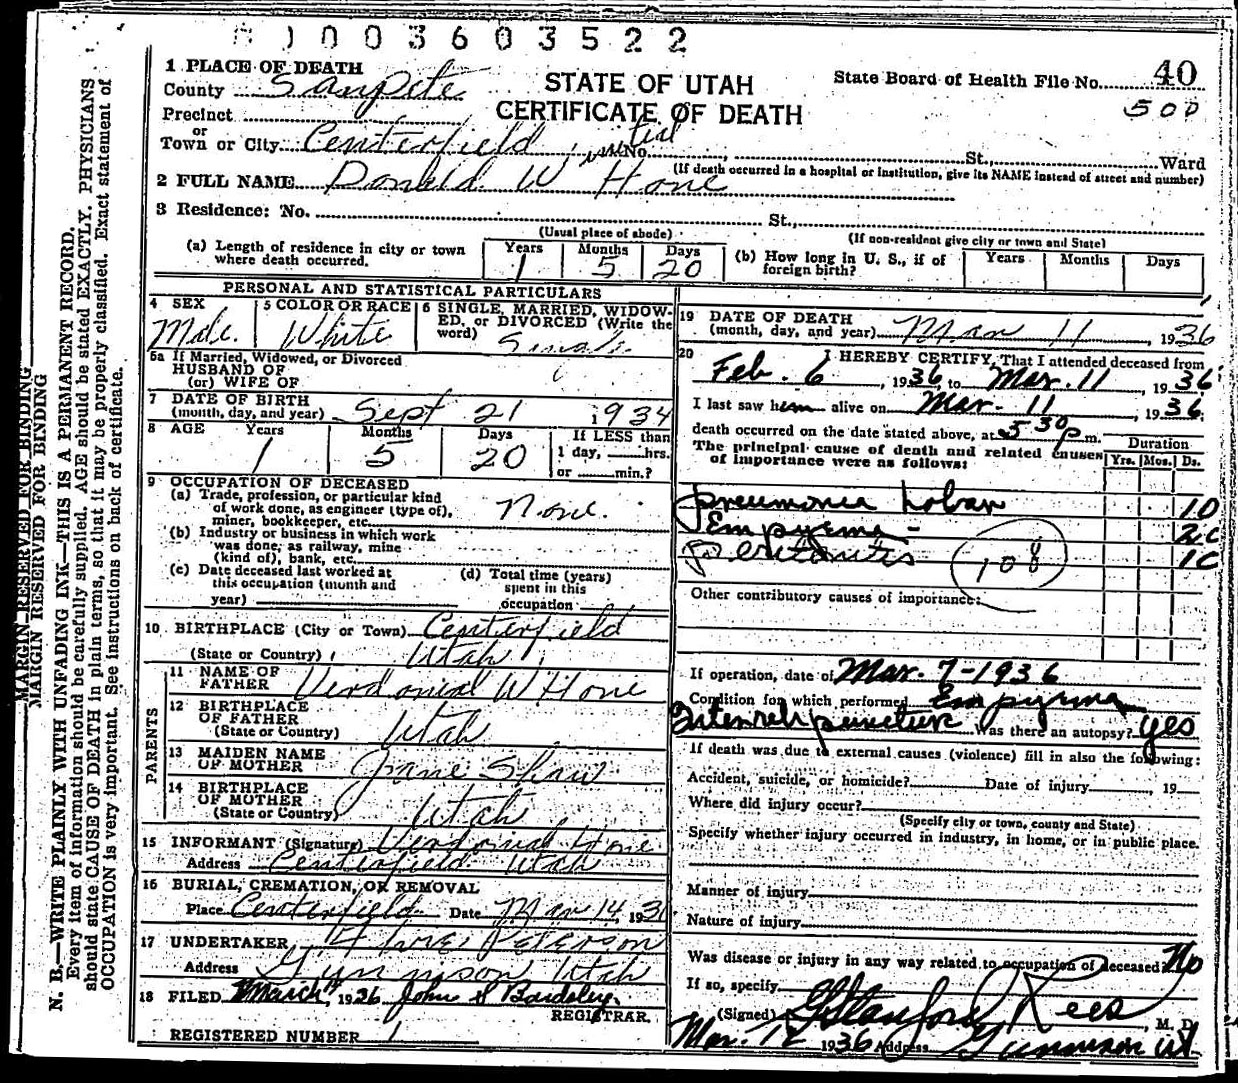 0 0 3 6 0 3 5 2 2
1 PLACE OF DEATH
County Sanpete
Precinct
or
Town or City Centerfield
STATE OF UTAH
CERTIFICATE OF DEATH
State Board of Health File No. 40
500
No. St., Ward
(If death occurred in a hospital or institution, give its NAME instead of street and number)
2 FULL NAME Donald W Hone
3 Residence: No. St.,
(Usual place of abode) (If non-resident give city or town and State)
(a) Length of residence in city or town where death occurred. Years 1 Months 5 Days 20
(b) How long in U. S., if of foreign birth? Years Months Days
PERSONAL AND STATISTICAL PARTICULARS
4 SEX Male
5 COLOR OR RACE White
6 SINGLE, MARRIED, WIDOW-
ED, or DIVORCED (Write the
word) Single
5a If Married, Widowed, or Divorced
HUSBAND OF
(or) WIFE OF
7 DATE OF BIRTH
(month, day, and year) Sept 21 1934
8 AGE Years 1 Months 5 Days 20
If LESS than
1 day, hrs.
or min.?
9 OCCUPATION OF DECEASED
(a) Trade, profession, or particular kind
of work done, as engineer (type of),
miner, bookkeeper, etc. None.
(b) Industry or business in which work
was done, as railway, mine
(kind of), bank, etc.
(c) Date deceased last worked at
this occupation (month and
year)
(d) Total time (years)
spent in this
occupation
10 BIRTHPLACE (City or Town) Centerfield
(State or Country) Utah
PARENTS
11 NAME OF
FATHER Verdonial W Hone
12 BIRTHPLACE
OF FATHER
(State or Country) Utah
13 MAIDEN NAME
OF MOTHER Jane Shaw
14 BIRTHPLACE
OF MOTHER
(State or Country) Utah
15 INFORMANT (Signature) Verdonial Hone
Address Centerfield Utah
16 BURIAL, CREMATION, OR REMOVAL
Place Centerfield Date Mar 14, 193
17 UNDERTAKER Peterson
Address Gunnison Utah
18 FILED March 1936 John S Bardsley
REGISTRAR.
REGISTERED NUMBER 1
19 DATE OF DEATH
(month, day, and year) Mar 11 1936
20 I HEREBY CERTIFY, That I attended deceased from
Feb. 6, 1936 to Mar. 11, 1936
I last saw him alive on Mar. 11, 1936
death occurred on the date stated above, at 5 30 p m.
The principal cause of death and related causes
of importance were as follows:
Duration
Yrs. Mos. Ds.
Pneumonia Lobar 10
Empyema
Peritonitis
108
Other contributory causes of importance:
If operation, date of Mar. 7-1936
Condition for which performed Empyema
puncture Was there an autopsy? yes
If death was due to external causes (violence) fill in also the following:
Accident, suicide, or homicide? Date of injury , 19
Where did injury occur?
(Specify city or town, county and State)
Specify whether injury occurred in industry, in home, or in public place.
Manner of injury
Nature of injury
Was disease or injury in any way related to occupation of deceased? No
If so, specify
(Signed) G Stanford Rees, M. D.
Mar. 12 1936 Address Gunnison Ut
MARGIN RESERVED FOR BINDING
MARGIN RESERVED FOR BINDING
N. B.—WRITE PLAINLY WITH UNFADING INK—THIS IS A PERMANENT RECORD.
Every item of information should be carefully supplied. AGE should be stated EXACTLY. PHYSICIANS
should state CAUSE OF DEATH in plain terms, so that it may be properly classified. Exact statement of
OCCUPATION is very important. See instructions on back of certificate.